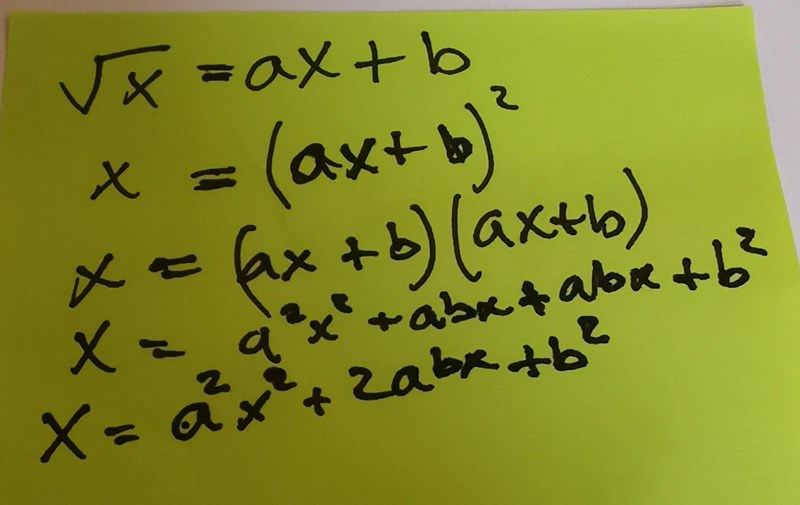 √x = ax + b
x = (ax + b)²
x = (ax + b)(ax + b)
x = a²x² + abx + abx + b²
x = a²x² + 2abx + b²